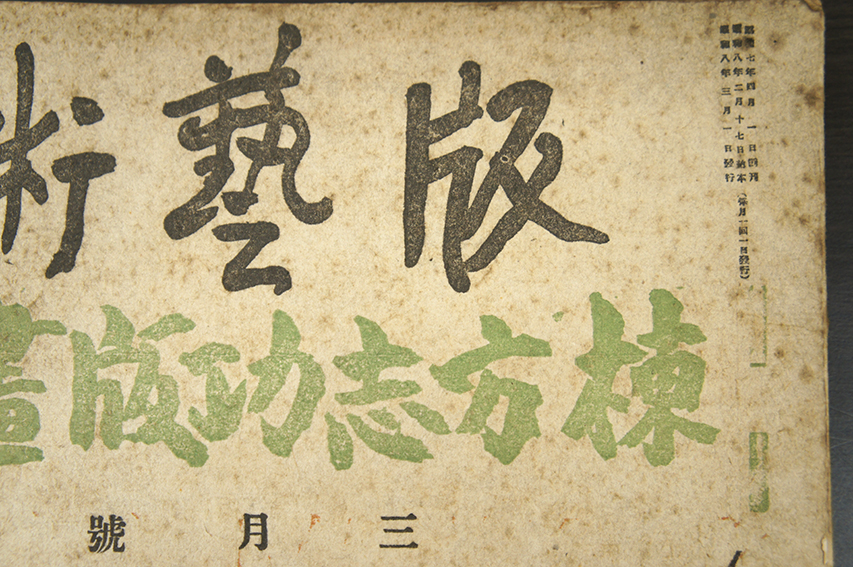 版藝術
棟方志功版畫
三月號
昭和七年四月一日四刊
昭和八年二月十七日納本
昭和八年三月一日發行
(每月一回一日發行)